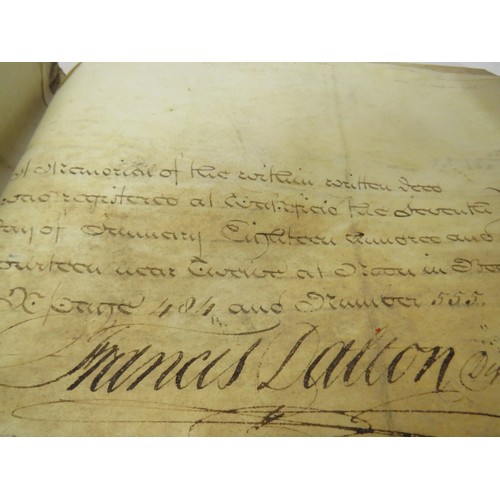 A Memorial of the within written Deed
was registered at Wakefield the Seventh
Day of January Eighteen Hundred and
Fourteen near Twelve at Noon in Boo
page 484 and Number 555.
Francis Dalton